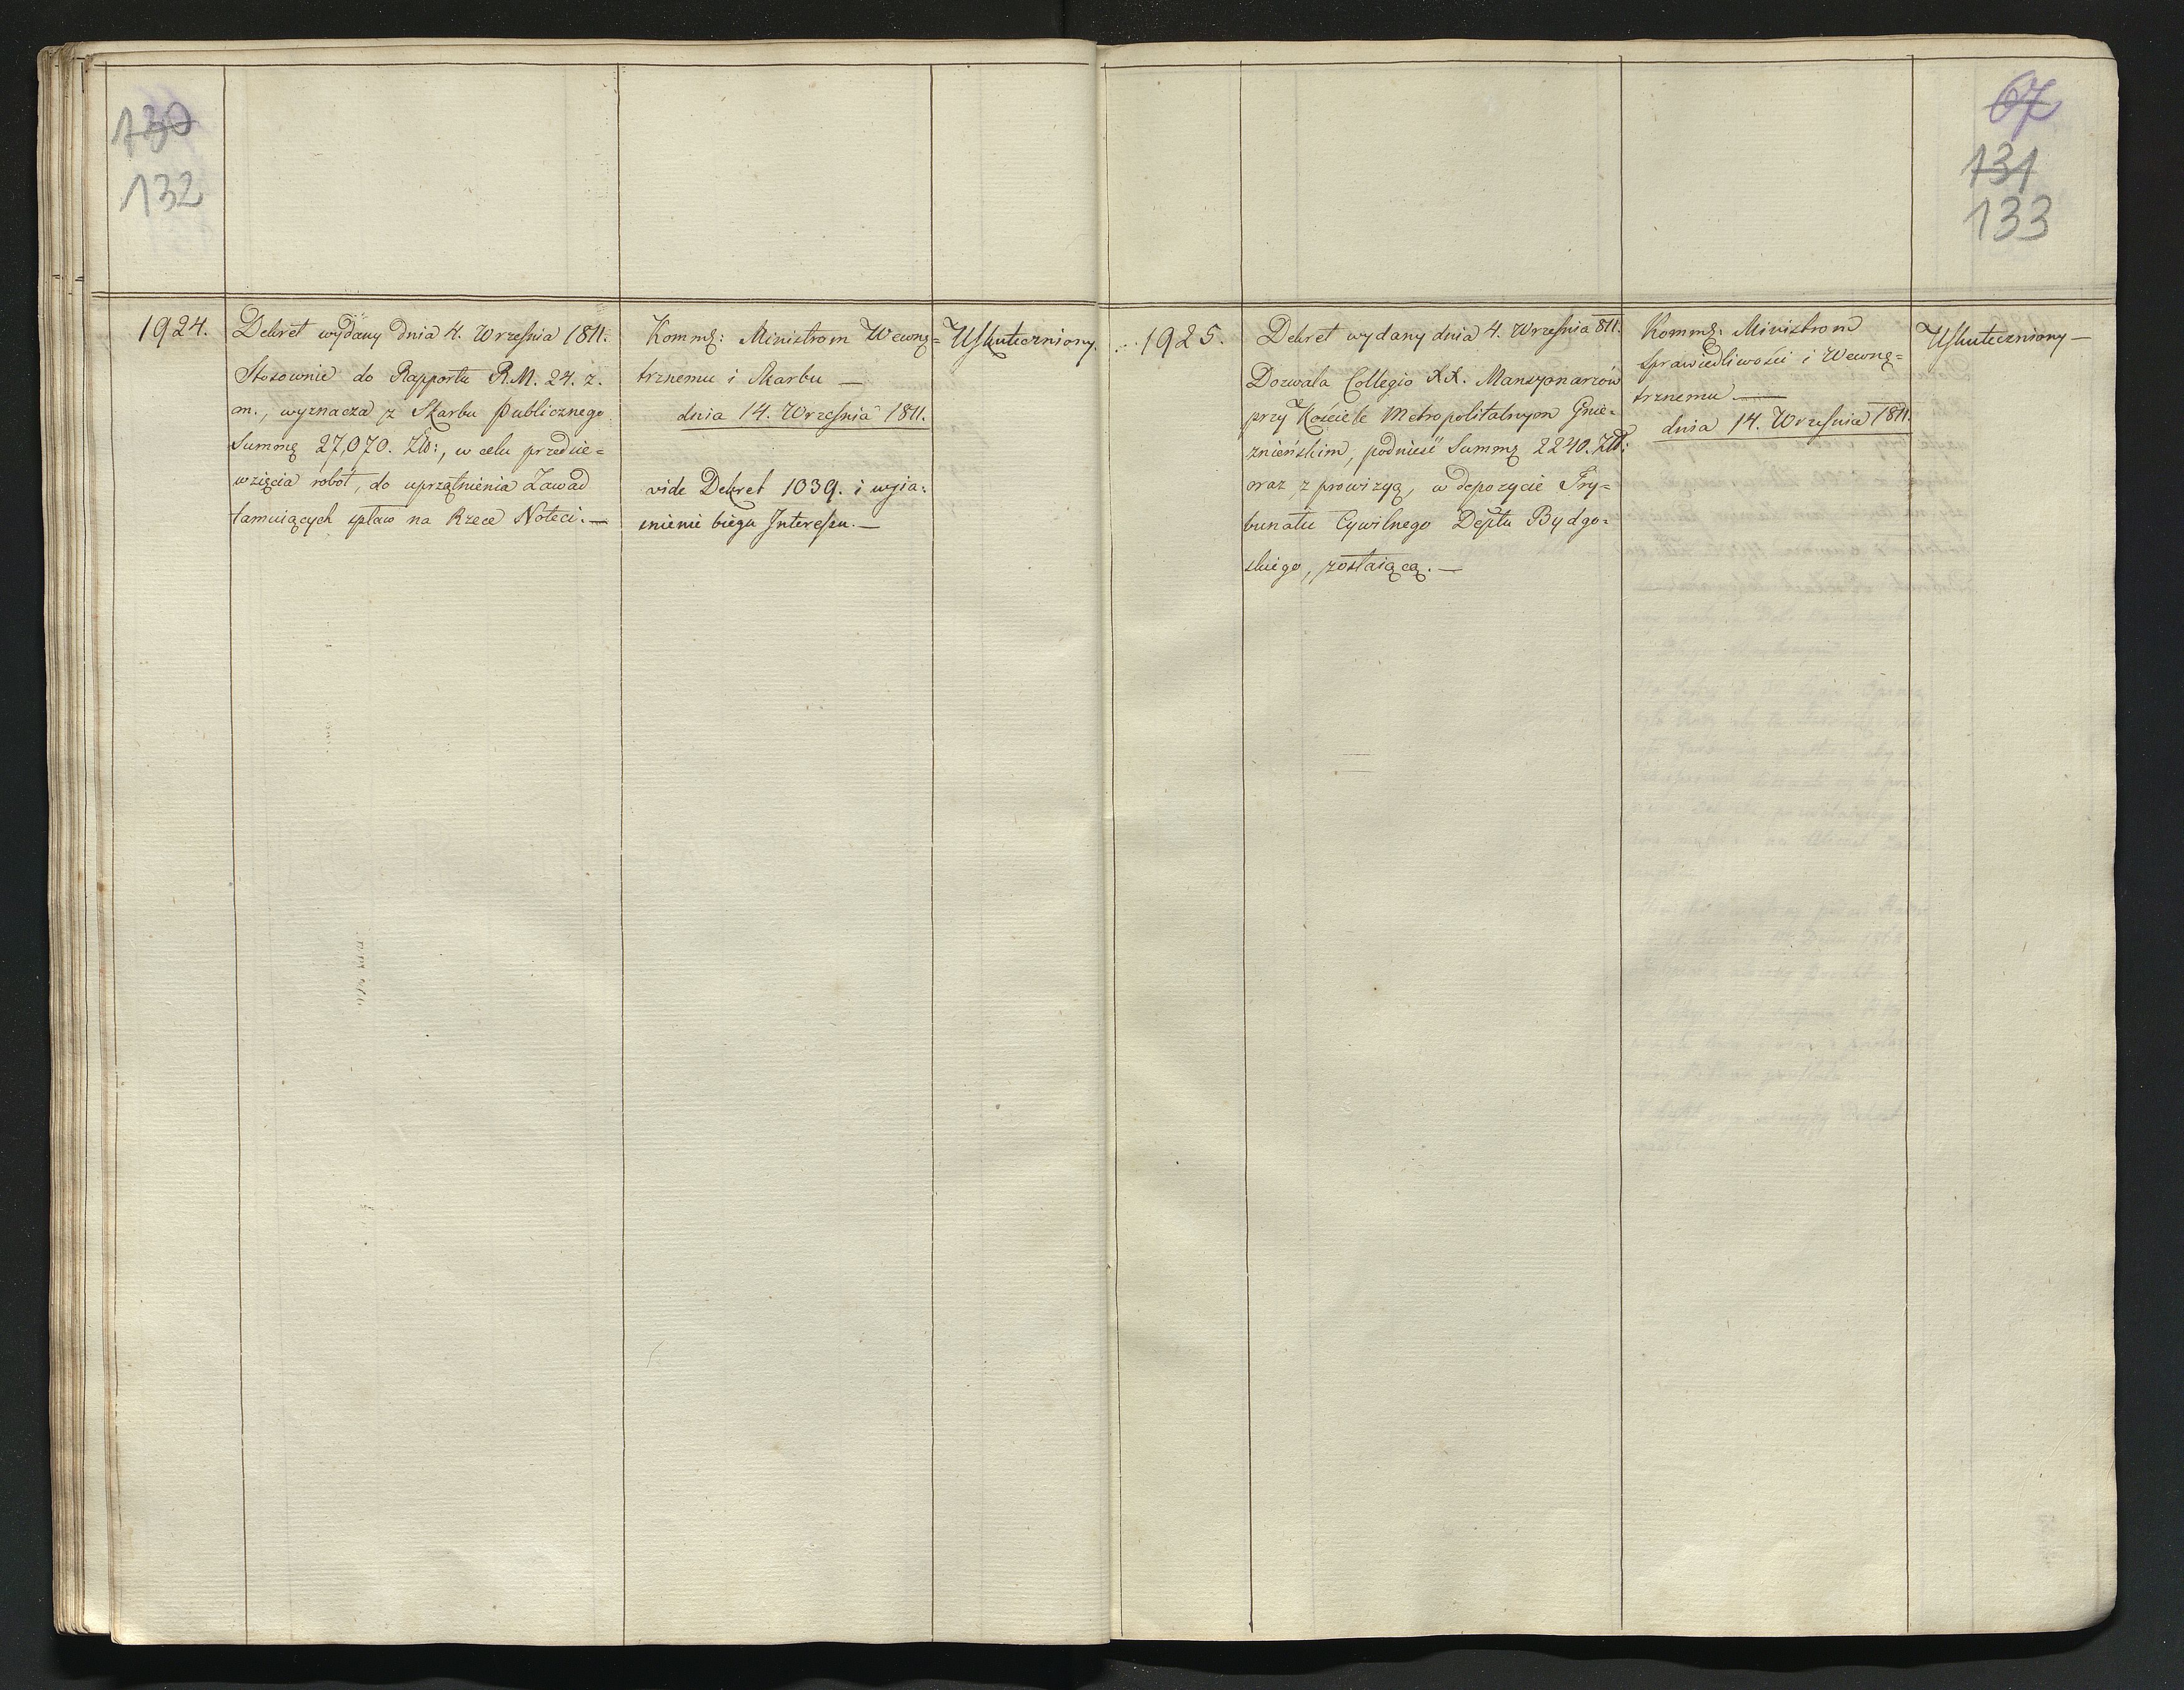 130
132
1924.
Dekret wydany dnia 4. Września 1811.
Stosownie do Rapportu R.M. 24. z.
m., wyznacza z Skarbu publicznego
Summę 27,070. Zł:, w celu przedsię=
wzięcia robót, do uprzątnienia Zawad
tamuiących spław na Rzece Noteci.—
Kommg: Ministrom Wewnę=
trznemu i Skarbu —
dnia 14. Września 1811.
vide Dekret 1039. i wyia=
śnienie biegu Interessu.—
Uskuteczniony.
67
131
133
1925.
Dekret wydany dnia 4. Września 811.
Dozwala Collegio XX. Mansyonarzów
przy Kościele Metropolitalnym Gnie=
znieńskim, podnieść Summę 2240. Zł:
oraz z prowizyą, w depozycie Try=
bunału Cywilnego Deptu Bydgo=
skiego, zostaiącą.—
Kommg: Ministrom
Sprawiedliwości i Wewnę=
trznemu —
dnia 14. Września 1811.
Uskuteczniony—